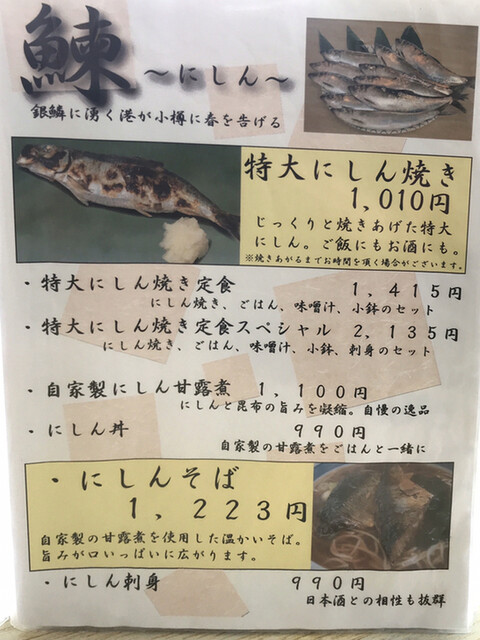 鰊 ～にしん～
銀鱗に湧く港が小樽に春を告げる
特大にしん焼き
1,010円
じっくりと焼きあげた特大
にしん。ご飯にもお酒にも。
※焼きあがるまでお時間を頂く場合がございます。
・特大にしん焼き定食 1,415円
にしん焼き、ごはん、味噌汁、小鉢のセット
・特大にしん焼き定食スペシャル 2,135円
にしん焼き、ごはん、味噌汁、小鉢、刺身のセット
・自家製にしん甘露煮 1,100円
にしんと昆布の旨みを凝縮。自慢の逸品
・にしん丼 990円
自家製の甘露煮をごはんと一緒に
・にしんそば
1,223円
自家製の甘露煮を使用した温かいそば。
旨みが口いっぱいに広がります。
・にしん刺身 990円
日本酒との相性も抜群